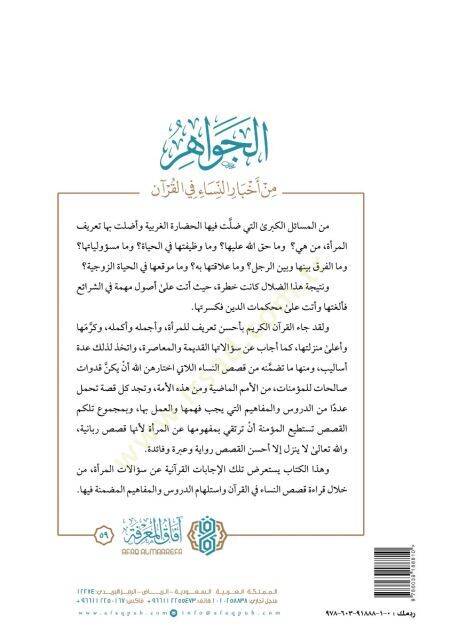 الجَوَاهِرُ
مِنْ أَخْبَارِ النِّسَاءِ فِي القُرْآنِ
من المسائل الكبرى التي ضلَّت فيها الحضارة الغربية وأضلت بها تعريف
المرأة، من هي؟ وما حق الله عليها؟ وما وظيفتها في الحياة؟ وما مسؤولياتها؟
وما الفرق بينها وبين الرجل؟ وما علاقتها به؟ وما موقعها في الحياة الزوجية؟
ونتيجة هذا الضلال كانت خطرة، حيث أتت على أصول مهمة في الشرائع
فألغتها وأتت على محكمات الدين فكسرتها.
ولقد جاء القرآن الكريم بأحسن تعريف للمرأة، وأجمله وأكمله، وكرَّمَها
وأعلى منزلتها، كما أجاب عن سؤالاتها القديمة والمعاصرة، واتخذ لذلك عدة
أساليب، ومنها ما تضمَّنه من قصص النساء اللاتي اختارهن الله أنْ يكنَّ قدوات
صالحات للمؤمنات، من الأمم الماضية ومن هذه الأمة، وتجد كل قصة تحمل
عددًا من الدروس والمفاهيم التي يجب فهمها والعمل بها، وبمجموع تلكم
القصص تستطيع المؤمنة أنْ ترتقي بمفهومها عن المرأة لأنها قصص ربانية،
والله تعالى لا ينزل إلا أحسن القصص رواية وعبرة وفائدة.
وهذا الكتاب يستعرض تلك الإجابات القرآنية عن سؤالات المرأة، من
خلال قراءة قصص النساء في القرآن واستلهام الدروس والمفاهيم المضمنة فيها.
٥٩
آفاق المعرفة
AFAQ ALMAAREFA
المملكة العربية السعودية - الرياض - الرمز البريدي:
www.afaqpub.com info@afaqpub.com
ردمك : ٠-١-٩١٨٨٨-٦٠٣-٩٧٨